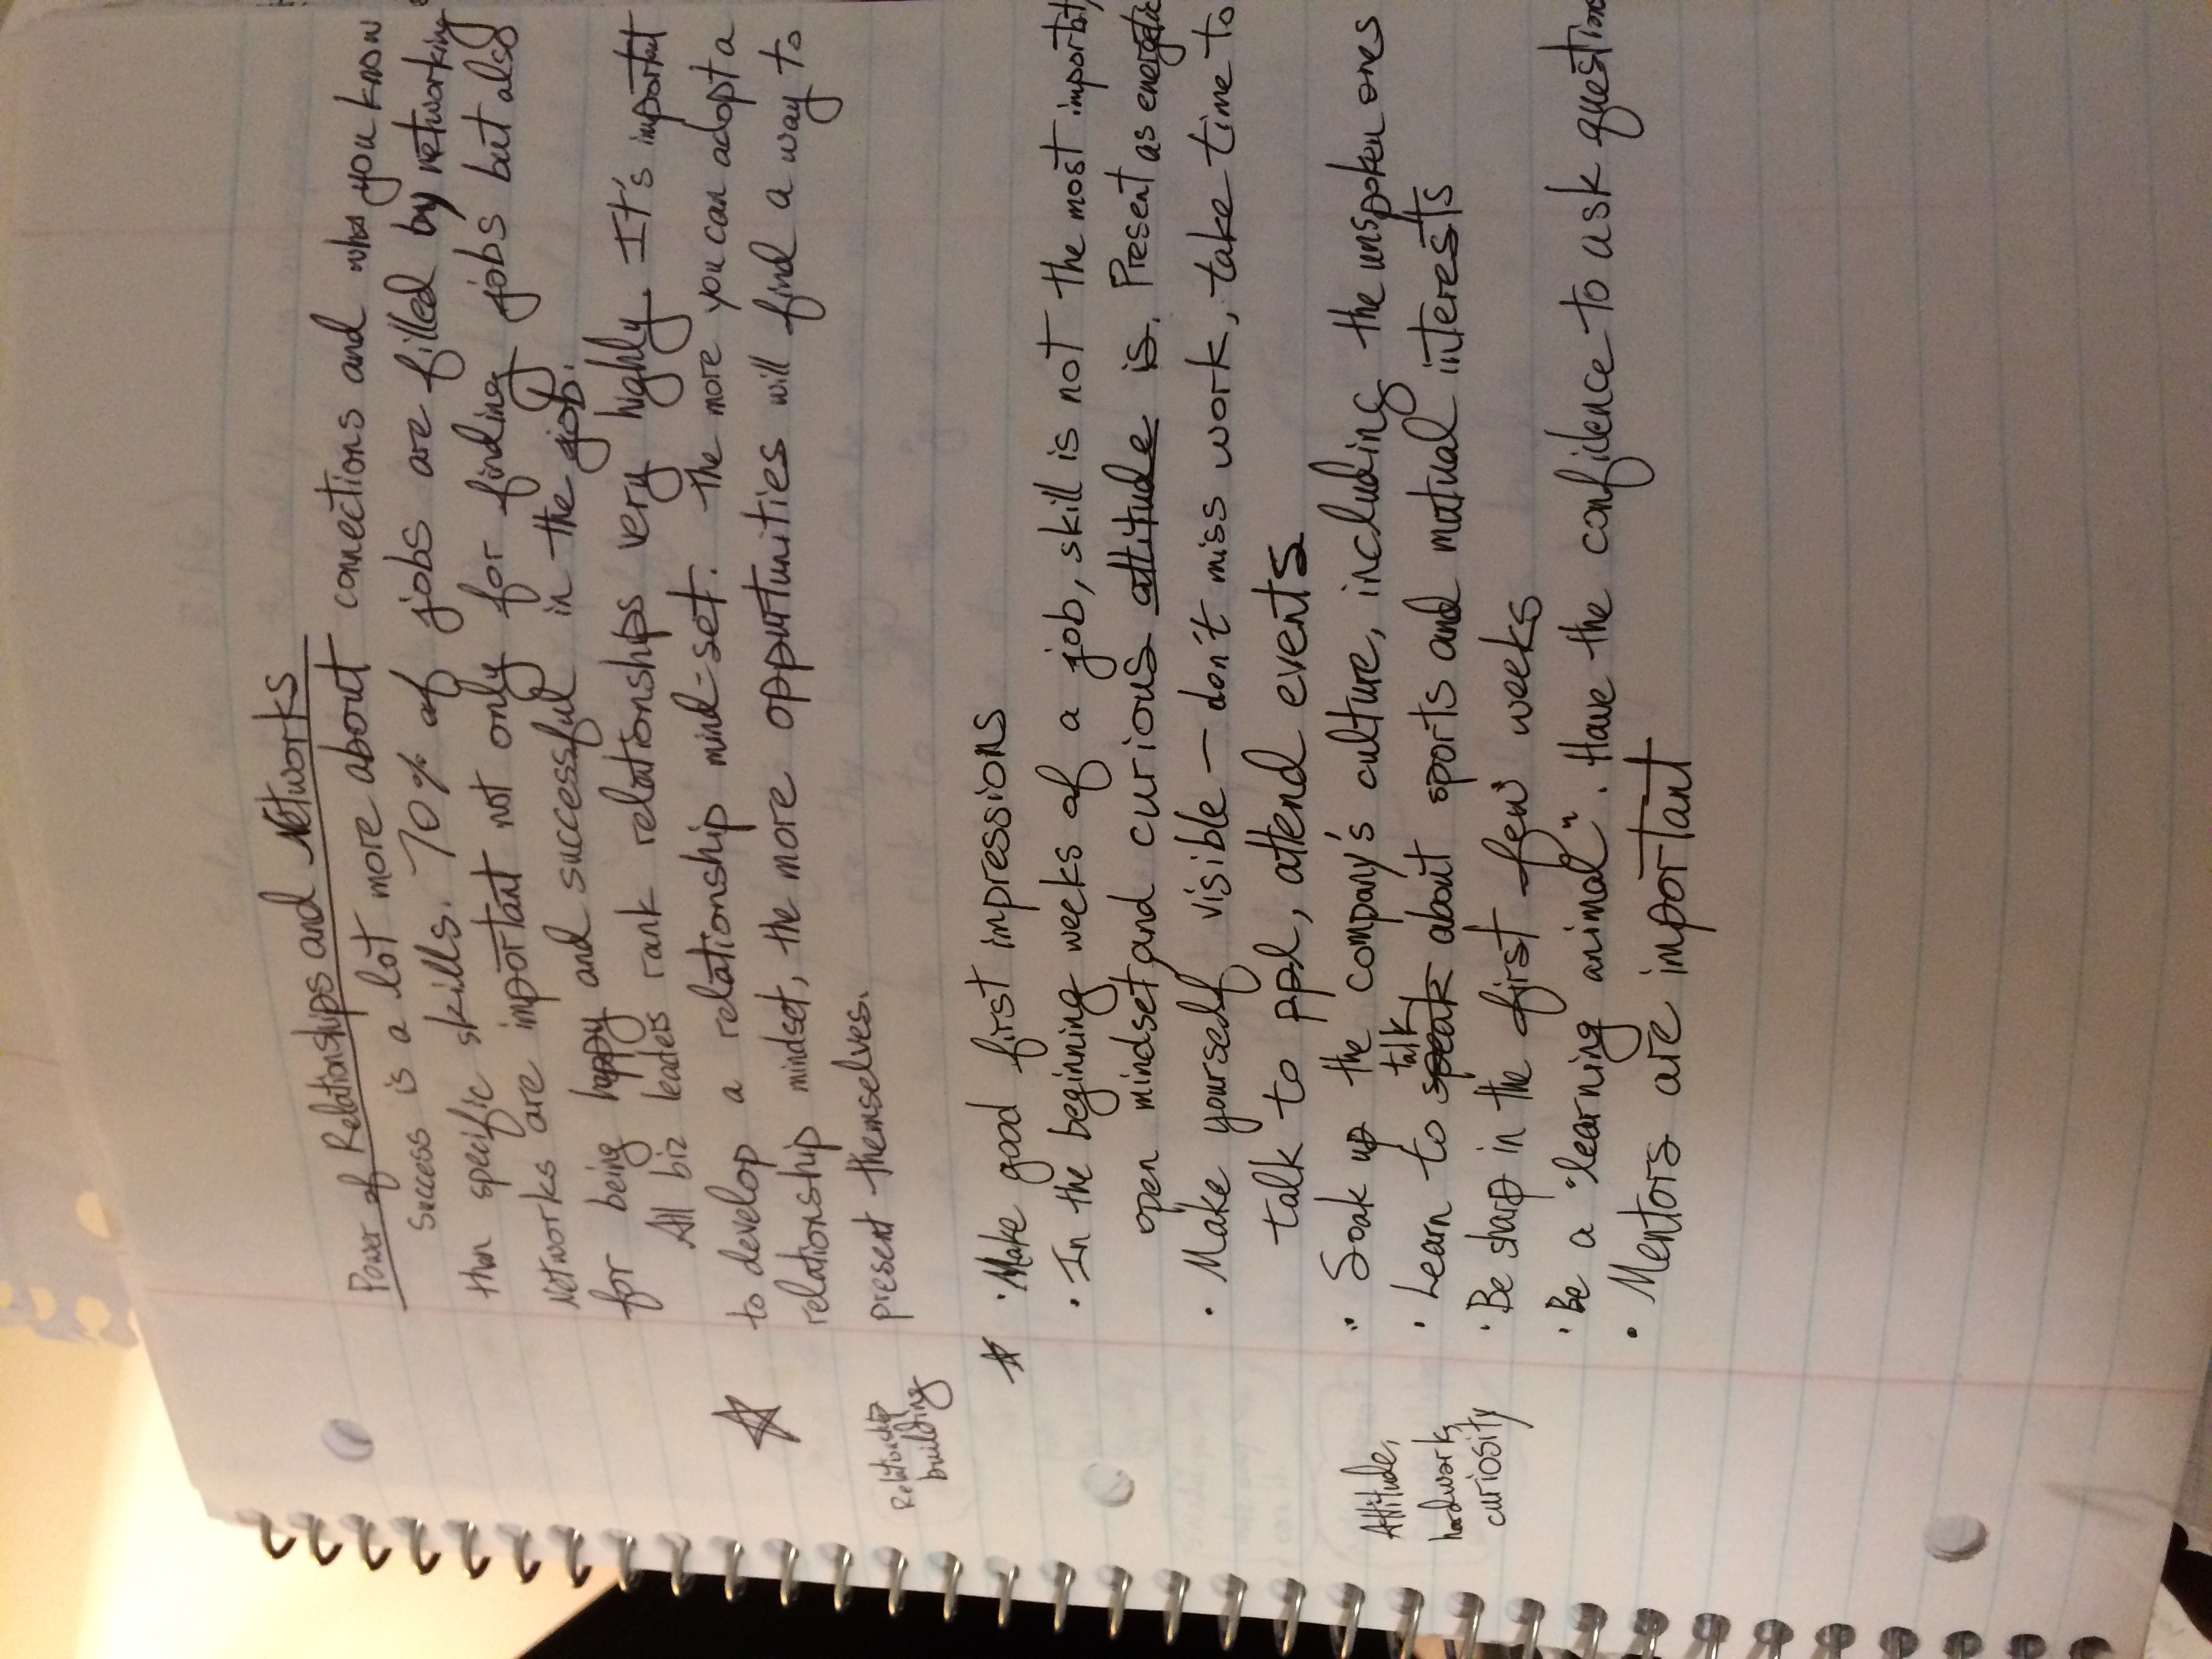 Power of Relationships and Networks
Success is a lot more about connections and who you know
than specific skills. 70% of jobs are filled by networking
Networks are important not only for finding jobs but also
for being happy and successful in the job.
All biz leaders rank relationships very highly. It's important
to develop a relationship mind-set. The more you can adopt a
relationship mindset, the more oppurtunities will find a way to
present themselves.
Relationship
building
· Make good first impressions
· In the beginning weeks of a job, skill is not the most important,
open mindset, and curious attitude is. Present as energetic
· Make yourself visible – don't miss work, take time to
talk to ppl, attend events
· Soak up the company's culture, including the unspoken ones
talk
· Learn to speak about sports and mutual interests
Attitude,
hardwork,
curiosity
· Be sharp in the first few weeks
· Be a "learning animal". Have the confidence to ask questions
· Mentors are important